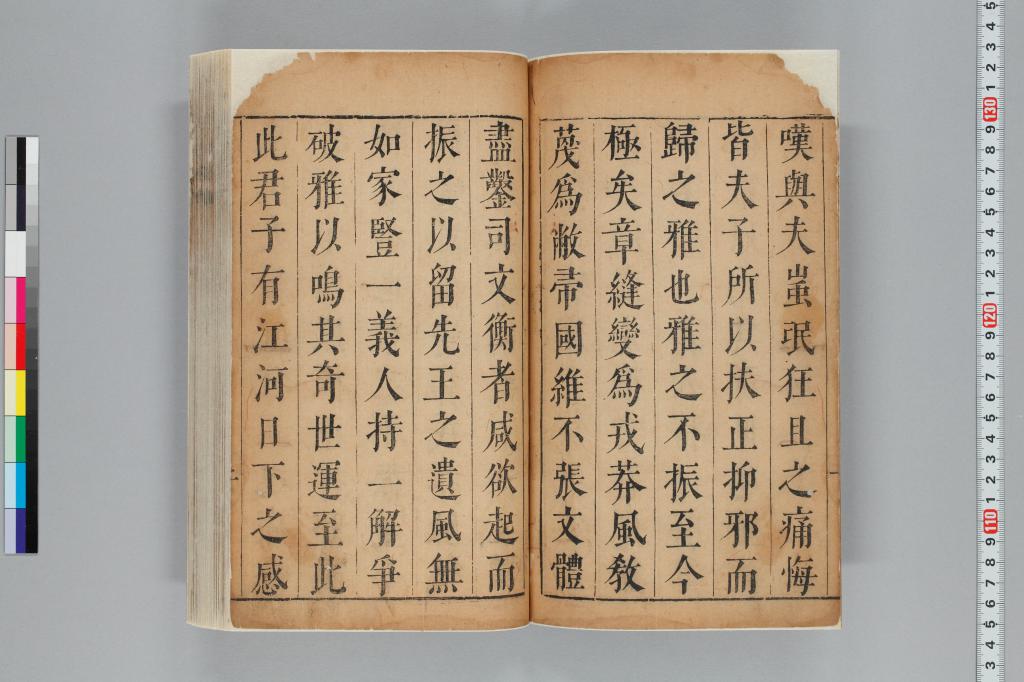 嘆與夫蚩氓狂且之痛悔
皆夫子所以扶正抑邪而
歸之雅也雅之不振至今
極矣章縫變爲戎莽風敎
茂爲敝帚國維不張文體
盡鑿司文衡者咸欲起而
振之以留先王之遺風無
如家豎一義人持一解爭
破雅以鳴其奇世運至此
此君子有江河日下之感